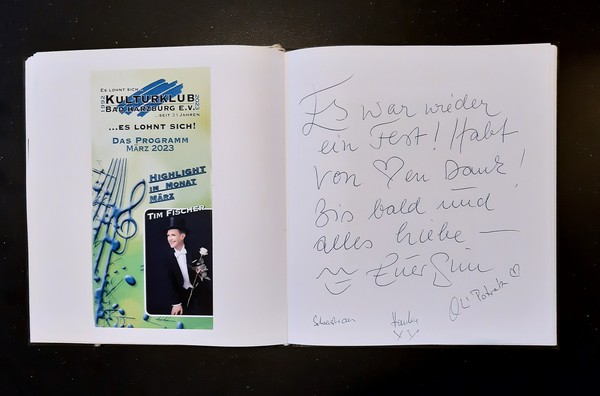 Es lohnt sich...
1992
Kulturklub
Bad Harzburg e.V.
2023
...seit 31 Jahren
...es lohnt sich!
Das Programm
März 2023
Highlight
im Monat
März
Tim Fischer
Es war wieder
ein Fest! Habt
von ♡en Dank!
Bis bald und
alles Liebe —
Euer Tim
Sebastian
Oli Potratz ♡